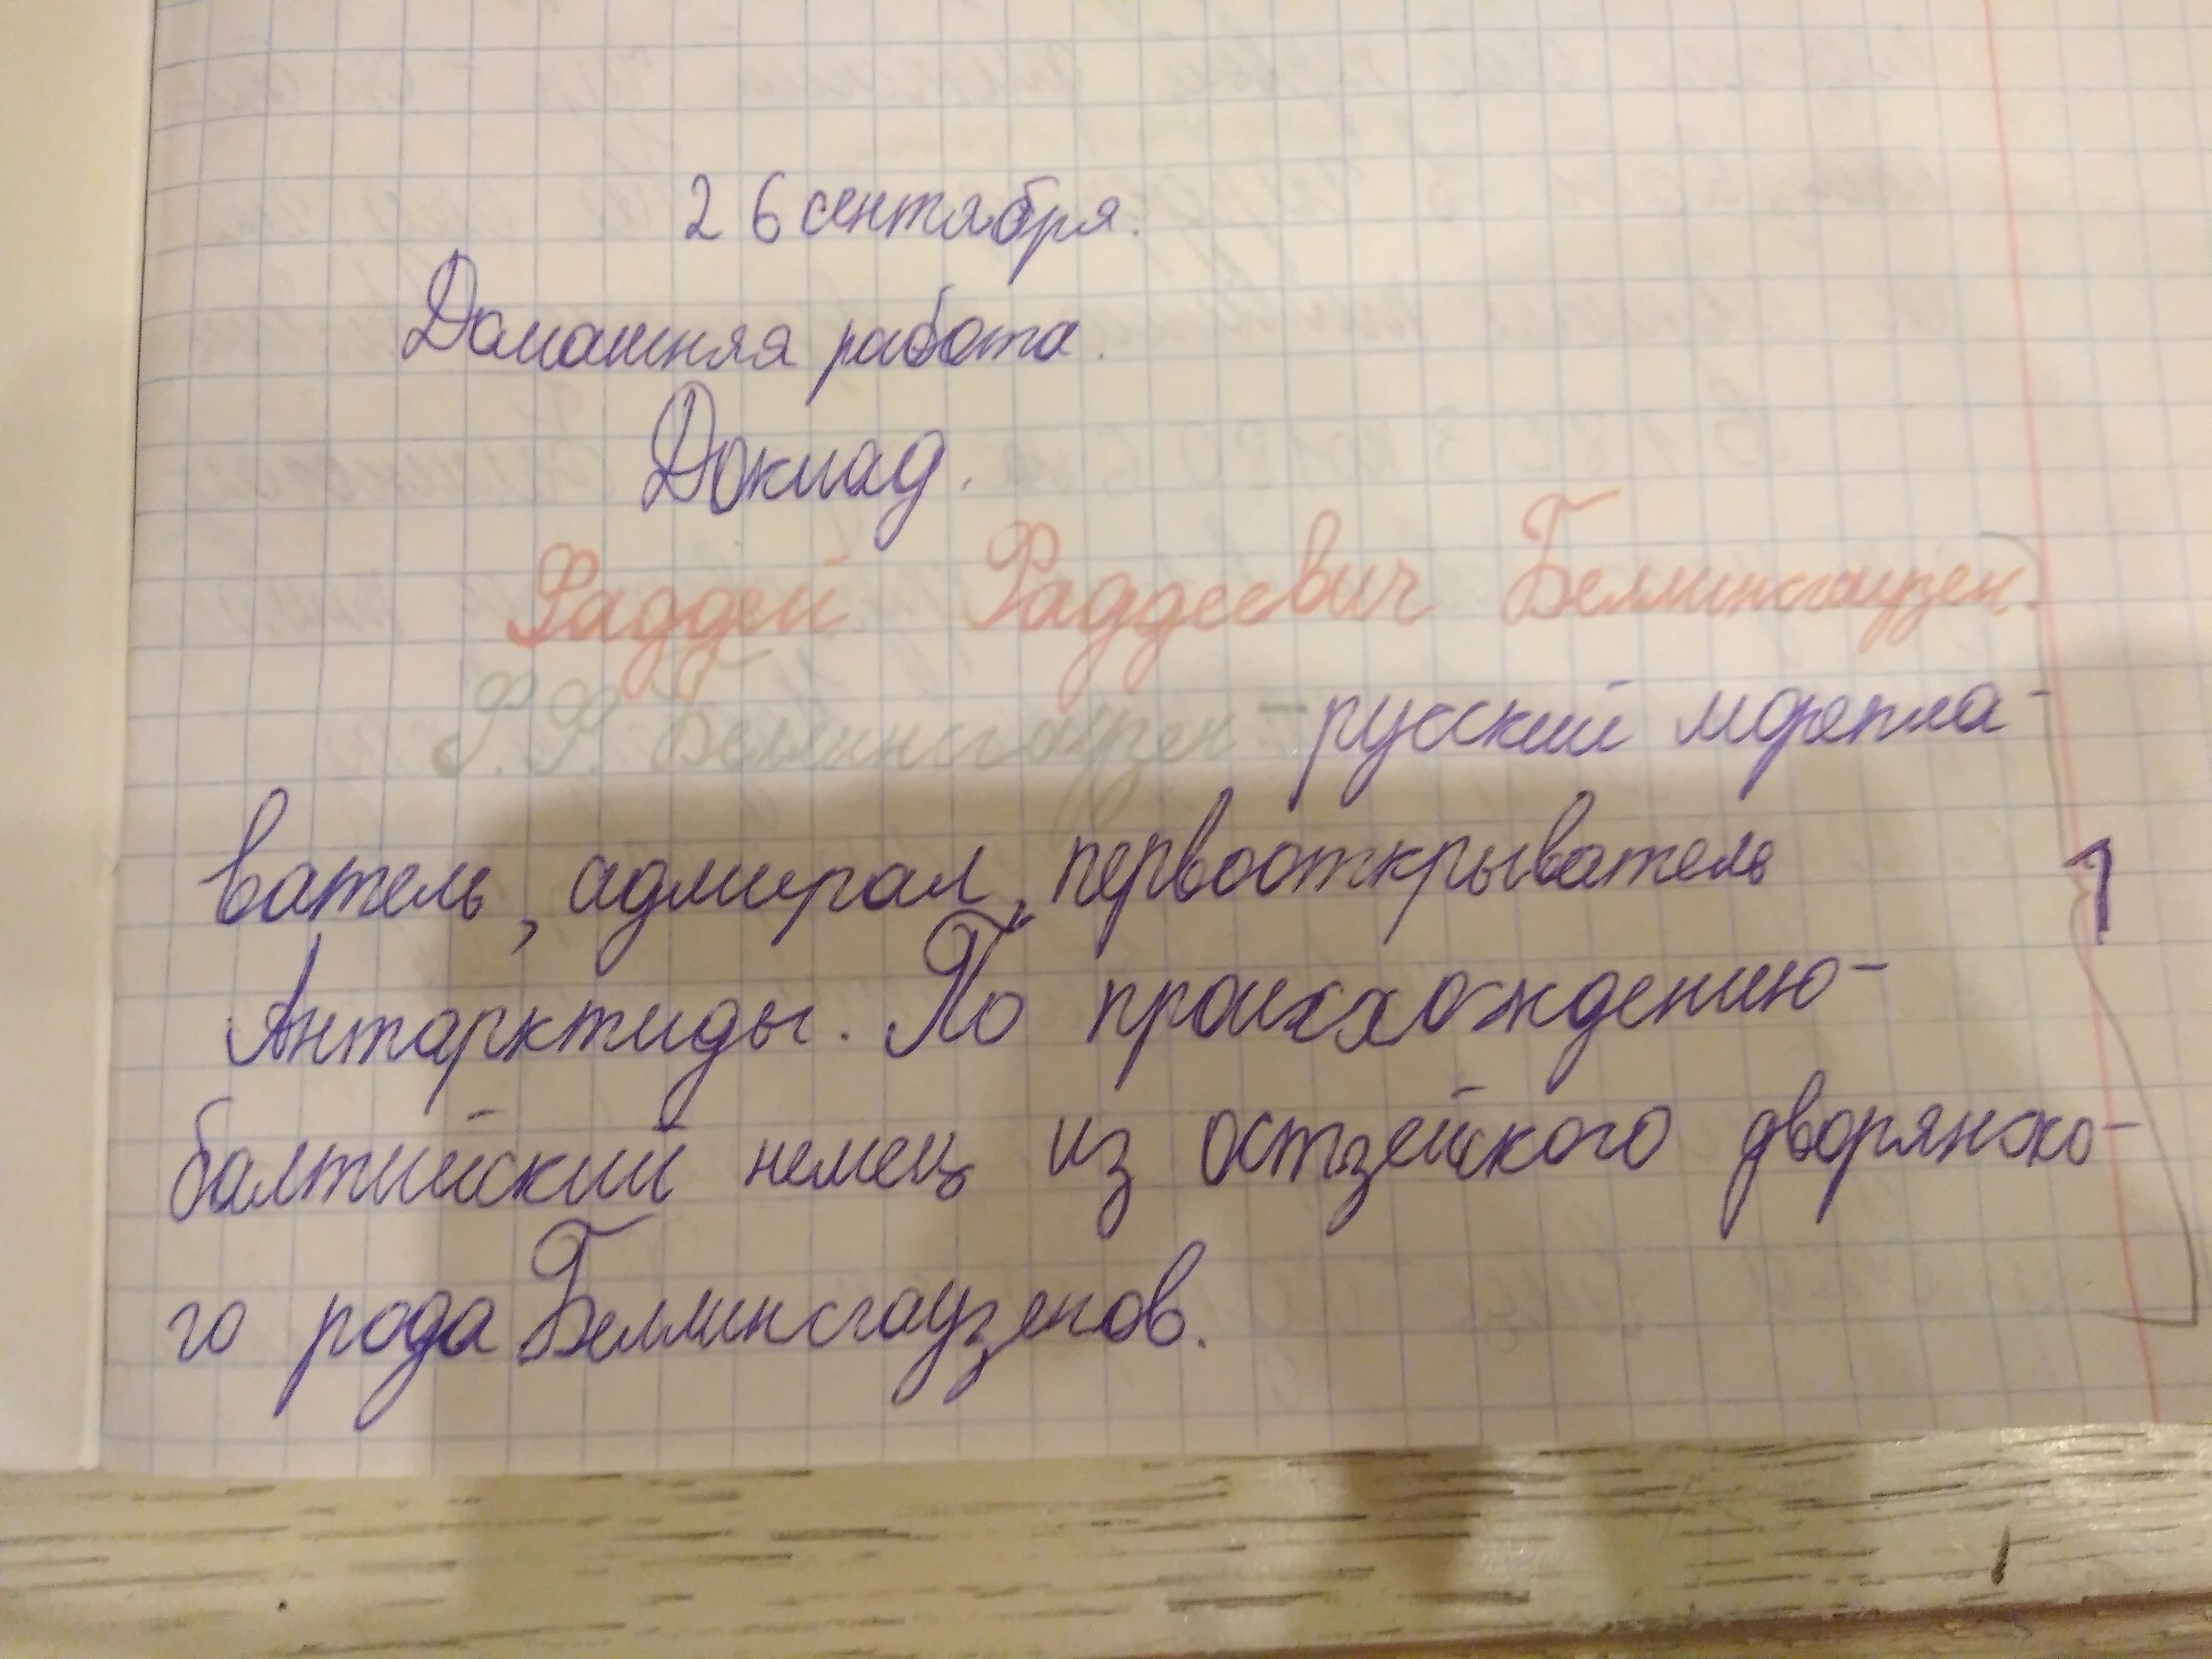 26 сентября.
Домашняя работа.
Доклад.
Фаддей Фаддеевич Беллинсгаузен.
Ф.Ф. Беллинсгаузен - русский морепла-
ватель, адмирал, первооткрыватель
1
Антарктиды. По происхождению -
балтийский немец из остзейского дворянско-
го рода Беллинсгаузенов.